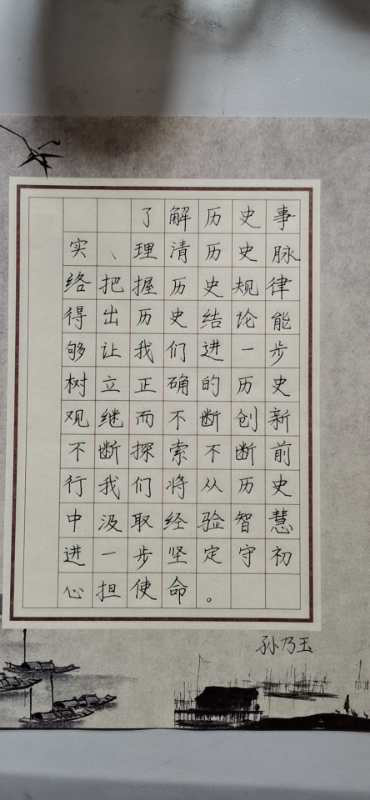 了解历史事
实、理清历史脉
络把握历史规律
得出历史结论能
够让我们进一步
树立正确的历史
观继而不断创新
不断探索不断前
行我们将从历史
中汲取经验智慧
进一步坚定守初
心担使命。
孙乃玉